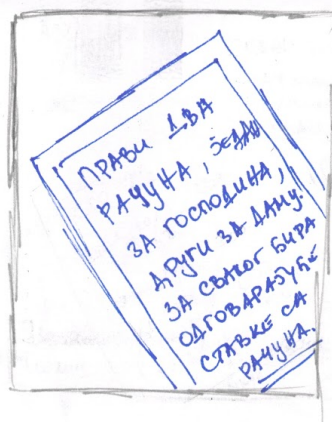 ПРАВИ ДВА
РАЧУНА, ЈЕДАН
ЗА ГОСПОДИНА,
ДРУГИ ЗА ДАМУ.
ЗА СВАКОГ БИРА
ОДГОВАРАЈУЋЕ
СТАВКЕ СА
РАЧУНА.